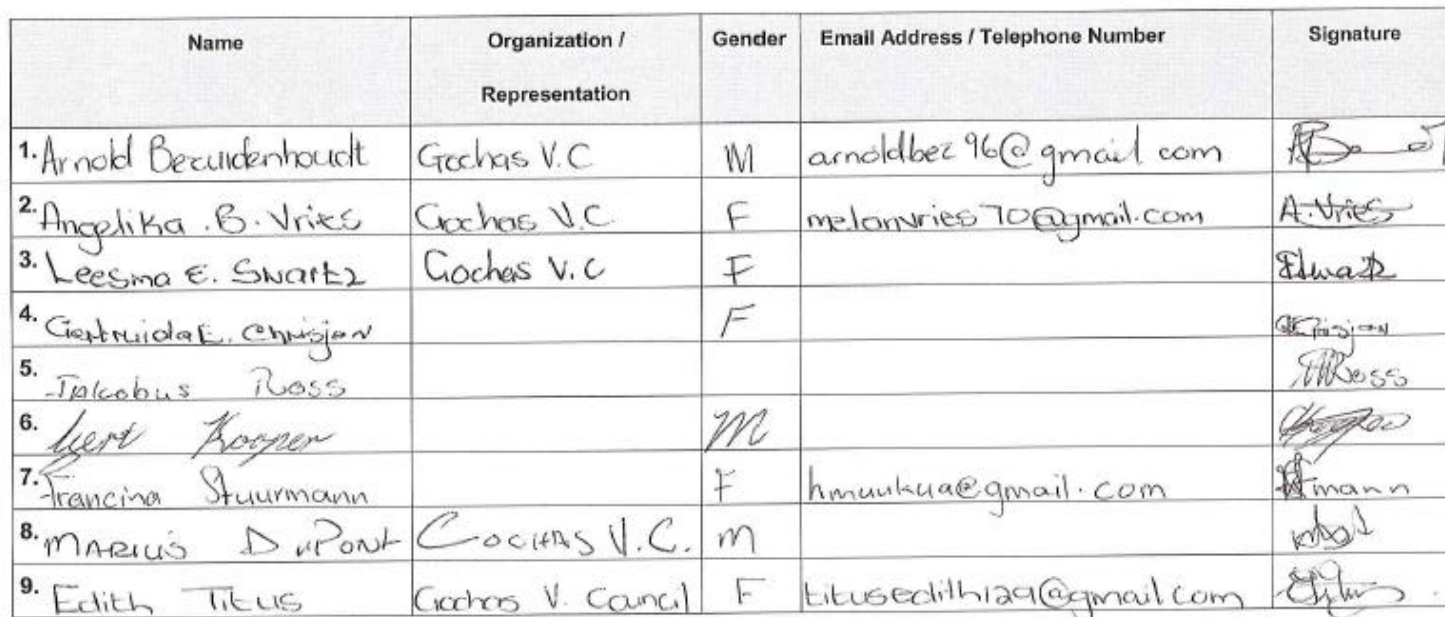 Name Organization / Representation Gender Email Address / Telephone Number Signature
1. Arnold Bezuidenhoudt Gochas V.C M arnoldbez96@gmail com
2. Angelika .B. Vries Gochas V.C. F melanvries70@gmail.com A.Vries
3. Leesma E. Swartz Gochas V.C F
4. Gertruida E. Chrisjan F
5. Jakobus Ross
6. Gert Kooper M
7. Francina Stuurmann F hmuukua@gmail.com
8. MARIUS DuPont GOCHAS V.C. m
9. Edith Titus Gochas V. Council F titusedith129@gmail.com